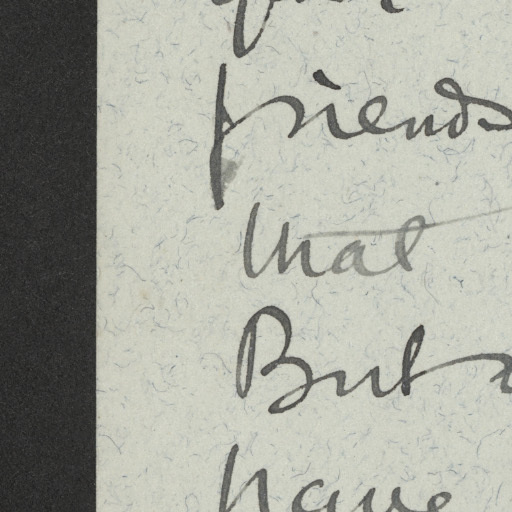 friends
that
But
have